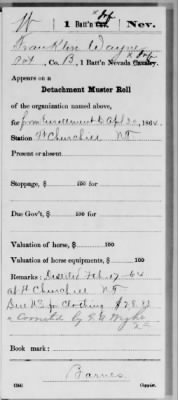 W | 1 Batt'n Cav. Inf. | Nev.
Franklin Wayne
Pvt., Co. B, 1 Batt'n Nevada Cavalry. Inf.
Appears on a
Detachment Muster Roll
of the organization named above,
for from enrollment to Apl 30, 1864.
Station Ft Churchill NT
Present or absent
Stoppage, $ 100 for
Due Gov't, $ 100 for
Valuation of horse, $ 100
Valuation of horse equipments, $ 100
Remarks: Deserted Feb. 17 64
at Ft Churchill NT
Due US for Clothing $
Book mark:
Barnes
Copyist.